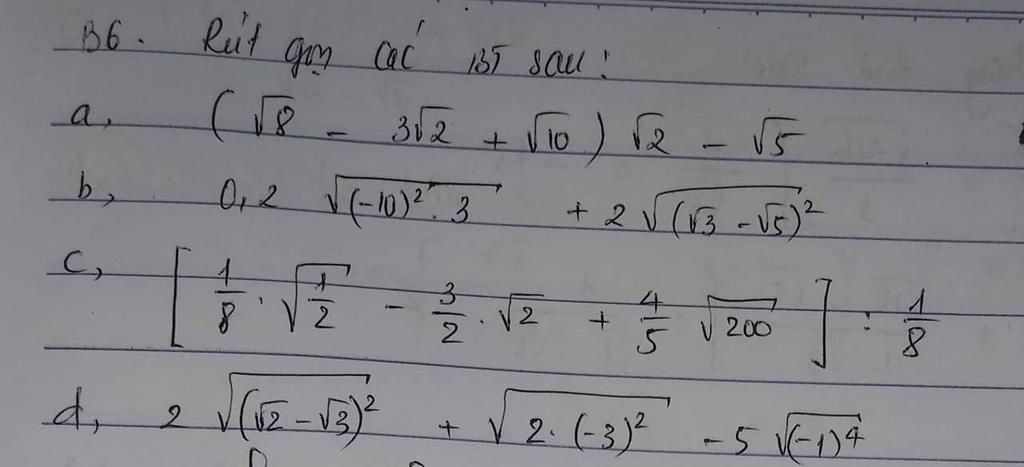 B6. Rút gọn các BT sau:
a, (√8 - 3√2 + √10) √2 - √5
b, 0,2 √((-10)² . 3) + 2√((√3 - √5)²)
c, [1/8 . √(1/2) - 3/2 . √2 + 4/5 √200] : 1/8
d, 2 √((√2 - √3)²) + √(2. (-3)²) - 5 √((-1)⁴)